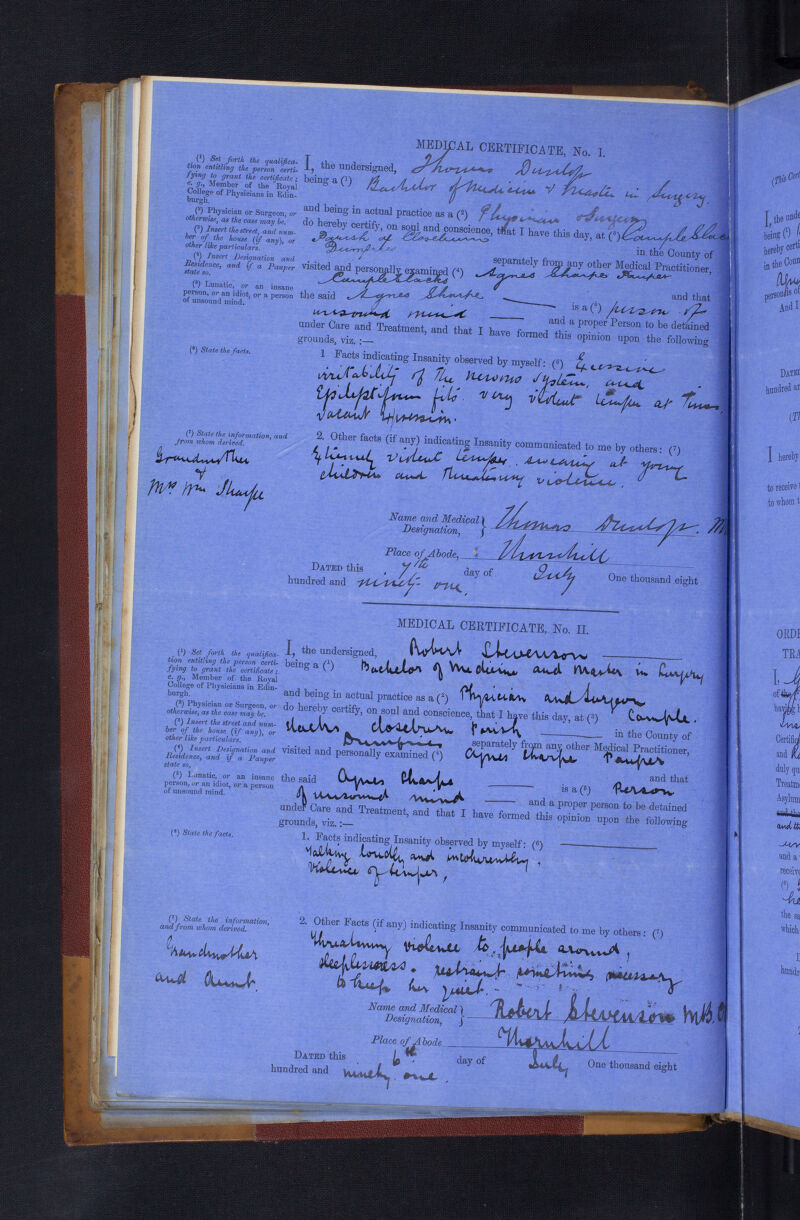 MEDICAL CERTIFICATE, No. I.
(¹) Set forth the qualifica-
tion entitling the person certi-
fying to grant the certificate;
e. g., Member of the Royal
College of Physicians in Edin-
burgh.
(²) Physician or Surgeon, or
otherwise, as the case may be.
(³) Insert the street, and num-
ber of the house (if any), or
other like particulars.
(⁴) Insert Designation and
Residence, and if a Pauper
state so.
(⁵) Lunatic, or an insane
person, or an idiot, or a person
of unsound mind.
I, the undersigned, Thomas Dunlop
being a (¹) Bachelor of Medicine & Master in Surgery.
and being in actual practice as a (²) Physician & Surgeon
do hereby certify, on soul and conscience, that I have this day, at (³) Cample Slacks
Parish of Closeburn in the County of
Dumfries separately from any other Medical Practitioner,
visited and personally examined (⁴) Agnes Sharpe Pauper
Cample Slacks
the said Agnes Sharpe and that
is a (⁵) person of
unsound mind and a proper Person to be detained
under Care and Treatment, and that I have formed this opinion upon the following
grounds, viz. :—
(⁶) State the facts.
1 Facts indicating Insanity observed by myself: (⁶) Excessive
irritability of the nervous system, and
Epileptiform fits very violent temper at times
vacant expression.
(⁷) State the information, and
from whom derived.
Grandmother
&
Mrs Wm Sharpe
2. Other facts (if any) indicating Insanity communicated to me by others: (⁷)
Extremely violent temper. swearing at young
children and threatening violence.
Name and Medical
Designation, Thomas Dunlop. M
Place of Abode, Thornhill
DATED this 7th day of July One thousand eight
hundred and ninety one.
MEDICAL CERTIFICATE, No. II.
(¹) Set forth the qualifica-
tion entitling the person certi-
fying to grant the certificate;
e. g., Member of the Royal
College of Physicians in Edin-
burgh.
(²) Physician or Surgeon, or
otherwise, as the case may be.
(³) Insert the street and num-
ber of the house (if any), or
other like particulars.
(⁴) Insert Designation and
Residence, and if a Pauper
state so.
(⁵) Lunatic, or an insane
person, or an idiot, or a person
of unsound mind.
I, the undersigned, Robert Stevenson
being a (¹) Bachelor of Medicine and Master in Surgery
and being in actual practice as a (²) Physician and Surgeon
do hereby certify, on soul and conscience, that I have this day, at (³) Cample.
Slacks Closeburn Parish in the County of
Dumfries separately from any other Medical Practitioner,
visited and personally examined (⁴) Agnes Sharpe Pauper
the said Agnes Sharpe and that
is a (⁵) Person
of unsound mind and a proper person to be detained
under Care and Treatment, and that I have formed this opinion upon the following
grounds, viz. :—
(⁶) State the facts.
1. Facts indicating Insanity observed by myself: (⁶)
Talking loudly and incoherently,
Violence of temper,
(⁷) State the information,
and from whom derived.
Grandmother
and Aunt.
2. Other Facts (if any) indicating Insanity communicated to me by others: (⁷)
Threatening violence to people around,
sleeplessness. restraint sometimes necessary
to keep her quiet.
Name and Medical
Designation, Robert Stevenson MB.
Place of Abode Thornhill
DATED this 6th day of July One thousand eight
hundred and ninety one.
(This Cert
I, the unde
being (¹)
hereby certi
in the Coun
Agn
persons of
And I
DATED
hundred an
I hereby
to receive
to whom t
ORDE
TRA
I,
having
Certific
and
duly qu
Treatme
Asylum
and a
receive
the sa
which
hundr